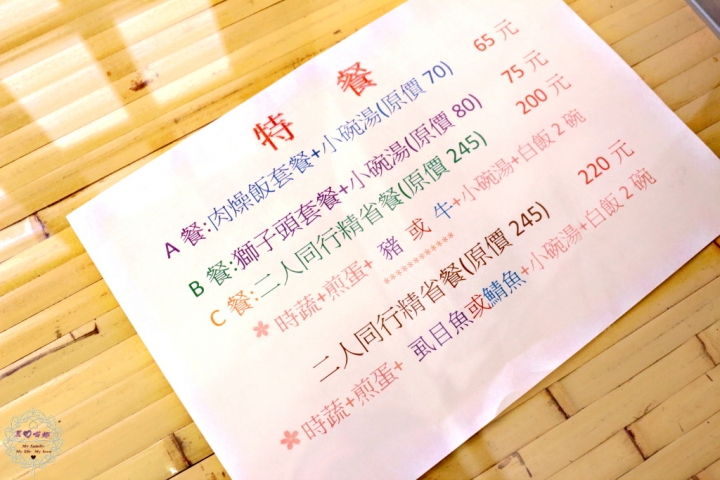 特 餐
A 餐:肉燥飯套餐+小碗湯(原價 70) 65 元
B 餐:獅子頭套餐+小碗湯(原價 80) 75 元
C 餐:二人同行精省餐(原價 245) 200 元
時蔬+煎蛋+ 豬 或 牛+小碗湯+白飯 2 碗
************
二人同行精省餐(原價 245) 220 元
時蔬+煎蛋+ 虱目魚或鯖魚+小碗湯+白飯 2 碗
My family
My life My love